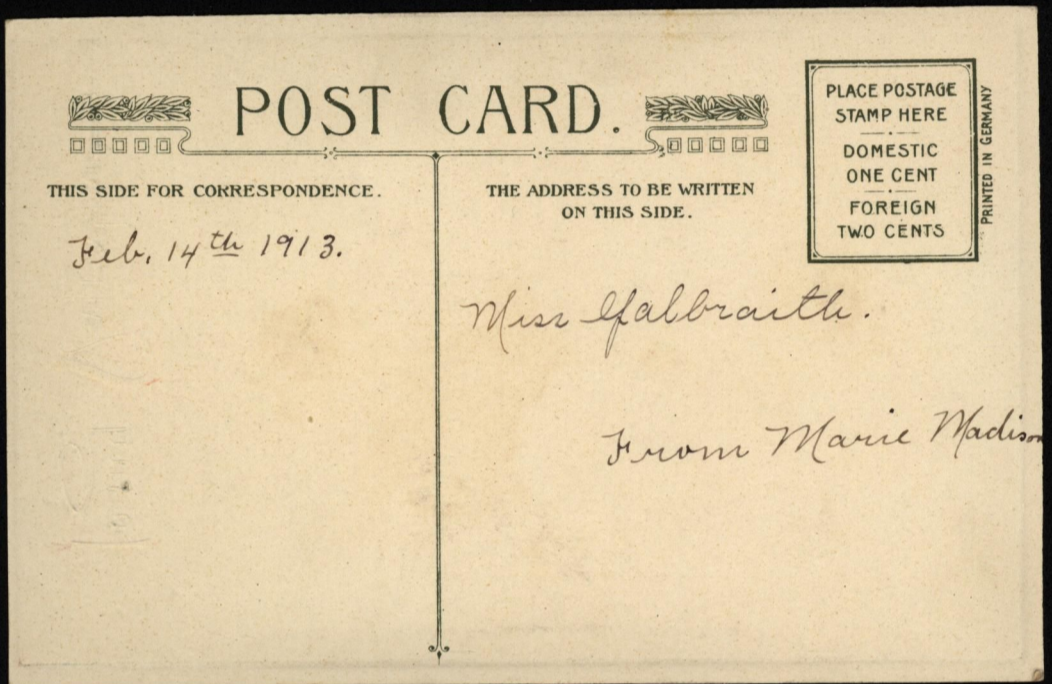 POST CARD.
THIS SIDE FOR CORRESPONDENCE.
Feb. 14th 1913.
THE ADDRESS TO BE WRITTEN
ON THIS SIDE.
PLACE POSTAGE
STAMP HERE
DOMESTIC
ONE CENT
FOREIGN
TWO CENTS
PRINTED IN GERMANY
Miss Galbraith.
From Marie Madison